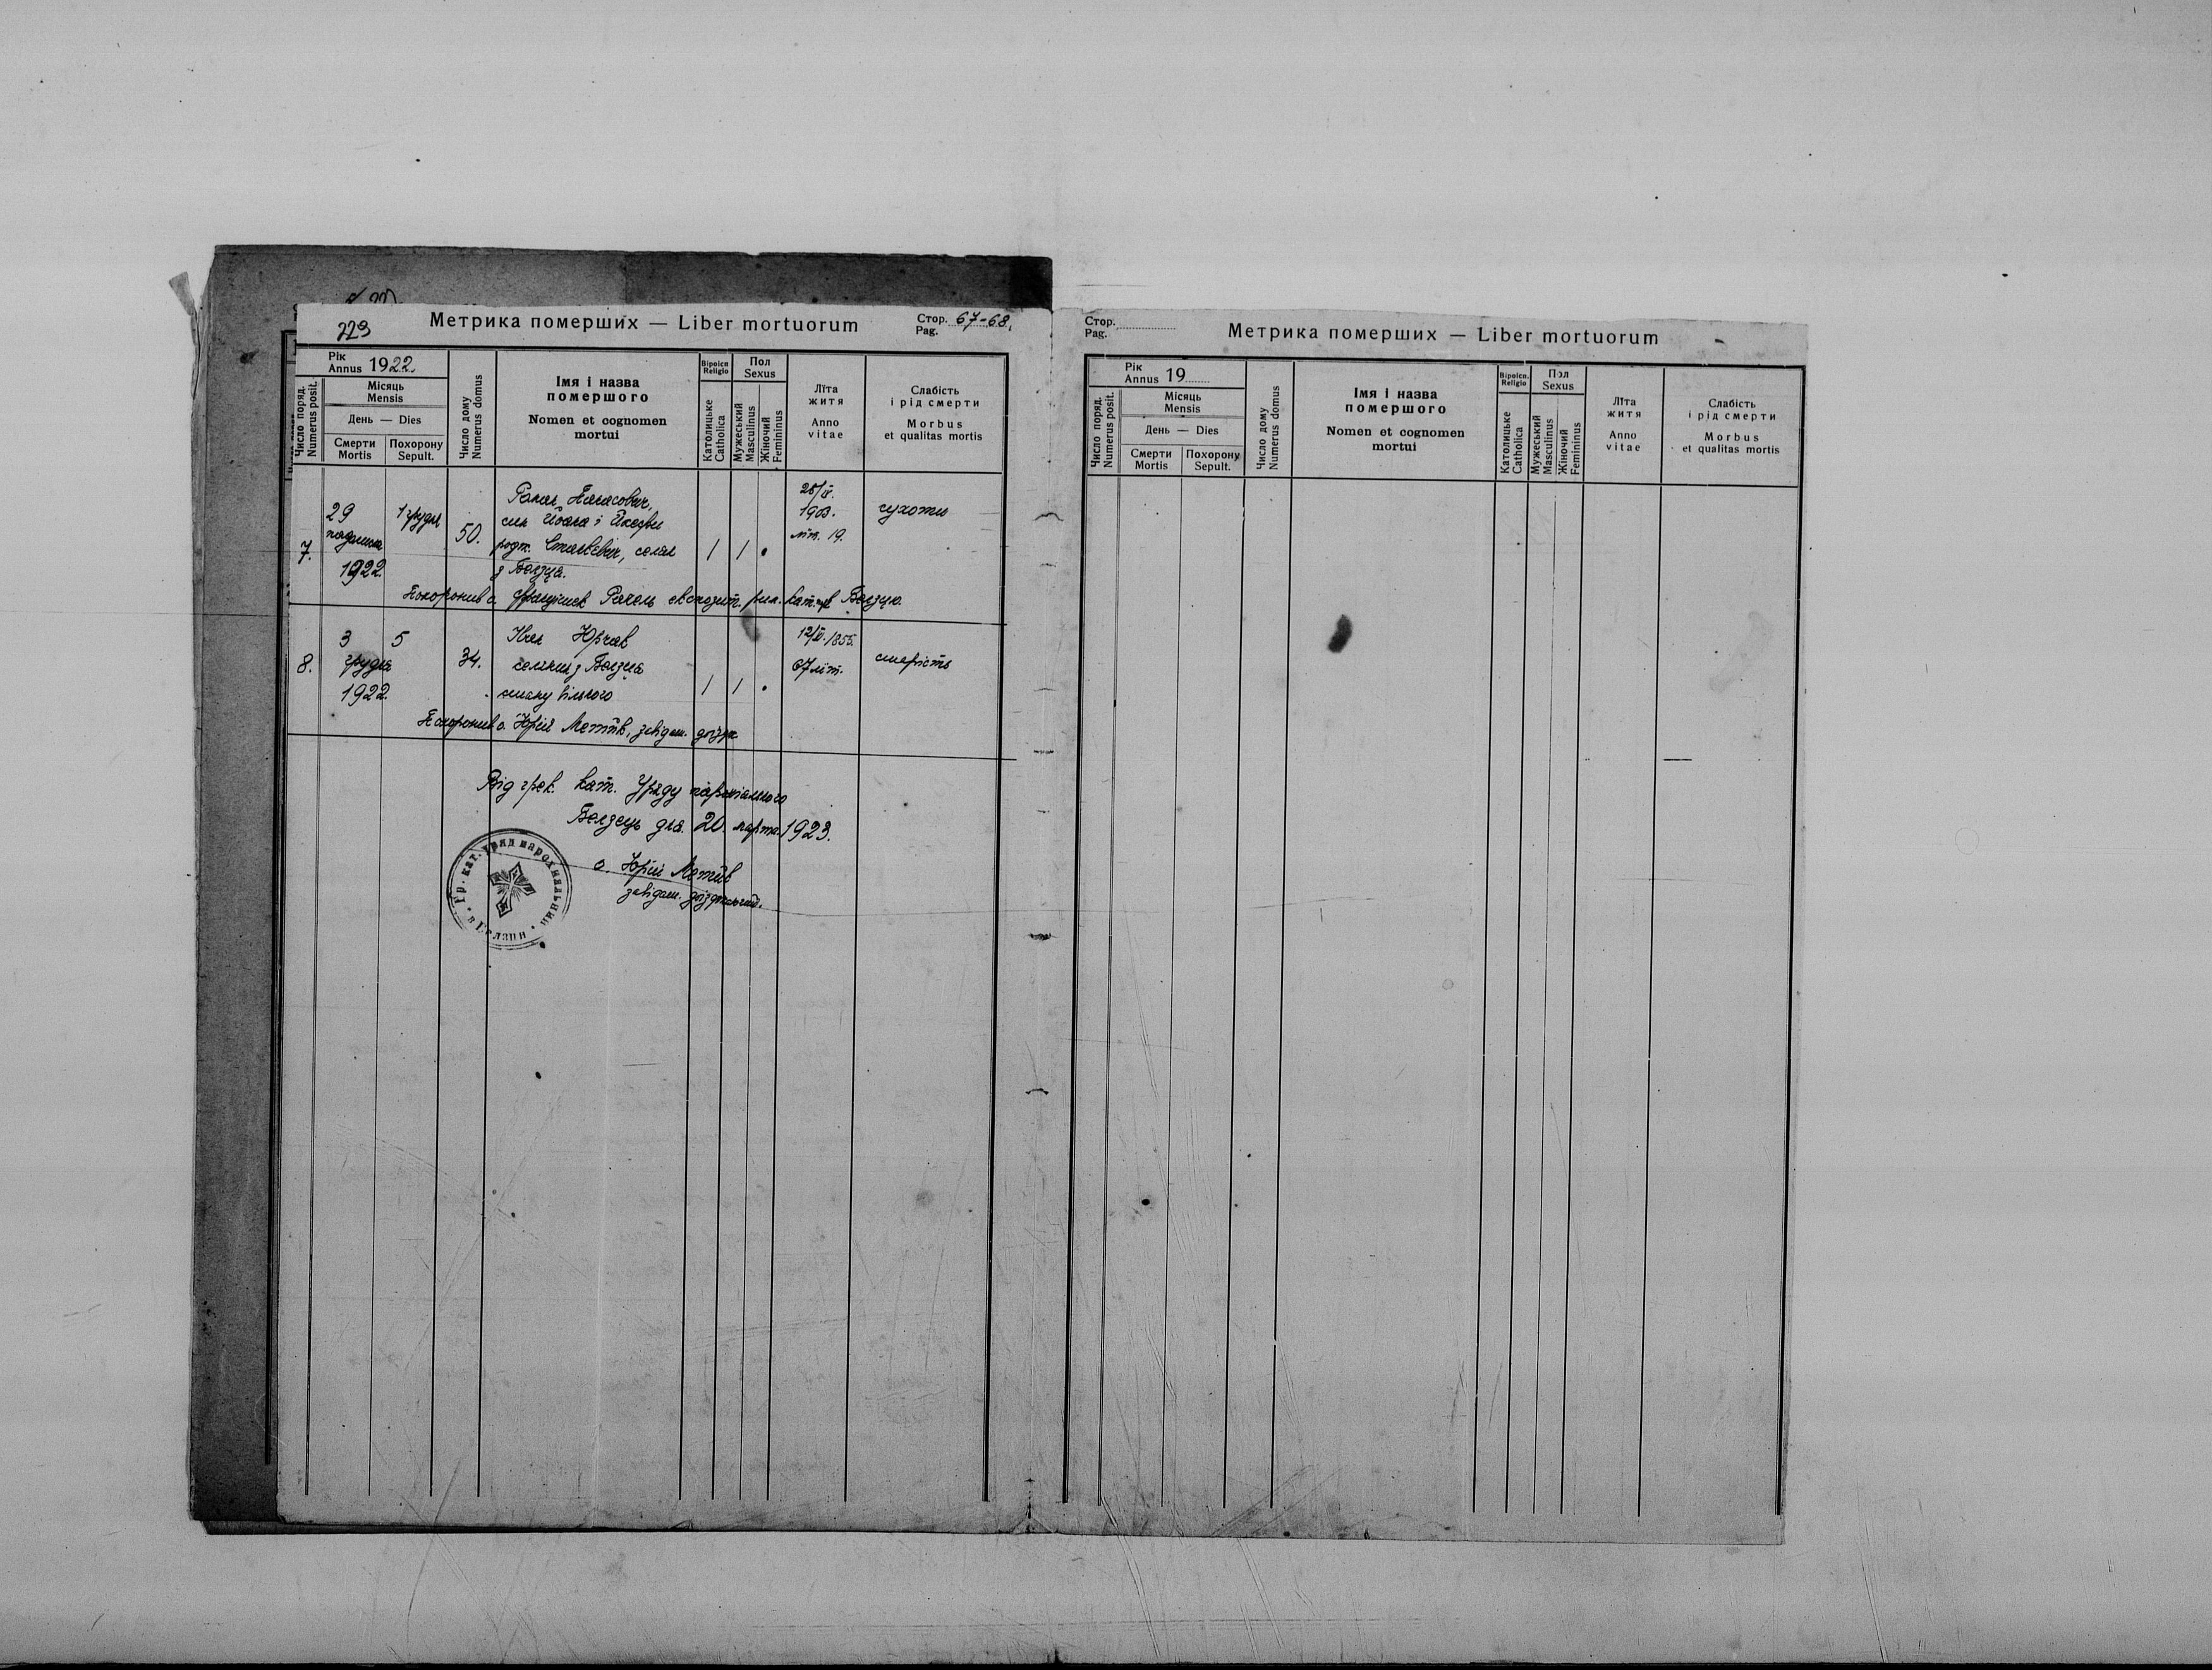 223
Метрика померших — Liber mortuorum
Стор. 67-68.
Pag.
Рік
Annus 1922.
Число поряд.
Numerus posit.
Місяць
Mensis
День — Dies
Смерти
Mortis
Похорону
Sepult.
Число дому
Numerus domus
Імя і назва
помершого
Nomen et cognomen
mortui
Віроісп.
Religio
Католицьке
Catholica
Пол
Sexus
Мужеський
Masculinus
Жіночий
Femininus
Лїта
житя
Anno
vitae
Слабість
і рід смерти
Morbus
et qualitas mortis
7.
29
1922.
1 грудн
50.
Роман
син Йоана і
з Белзця.
1903.
літ. 19.
сухоти
Похоронив о. Францішек експозит. рим. кат. в Белзцю.
8.
3
грудня
1922.
5
34.
Іван Юрчак
селянин з Белзця
стану вільного
1855.
67 літ.
старість
Похоронив о. Юрій Метпів, завідат. доїзд.
Від грек. кат. Уряду парохіяльного
Белзець дня 20. марта 1923.
о. Юрій
завідат. доїзджений.
Гр. кат. уряд парохияльний
в Белзци
Стор.
Pag.
Метрика померших — Liber mortuorum
Рік
Annus 19
Число поряд.
Numerus posit.
Місяць
Mensis
День — Dies
Смерти
Mortis
Похорону
Sepult.
Число дому
Numerus domus
Імя і назва
помершого
Nomen et cognomen
mortui
Віроісп.
Religio
Католицьке
Catholica
Пол
Sexus
Мужеський
Masculinus
Жіночий
Femininus
Лїта
житя
Anno
vitae
Слабість
і рід смерти
Morbus
et qualitas mortis